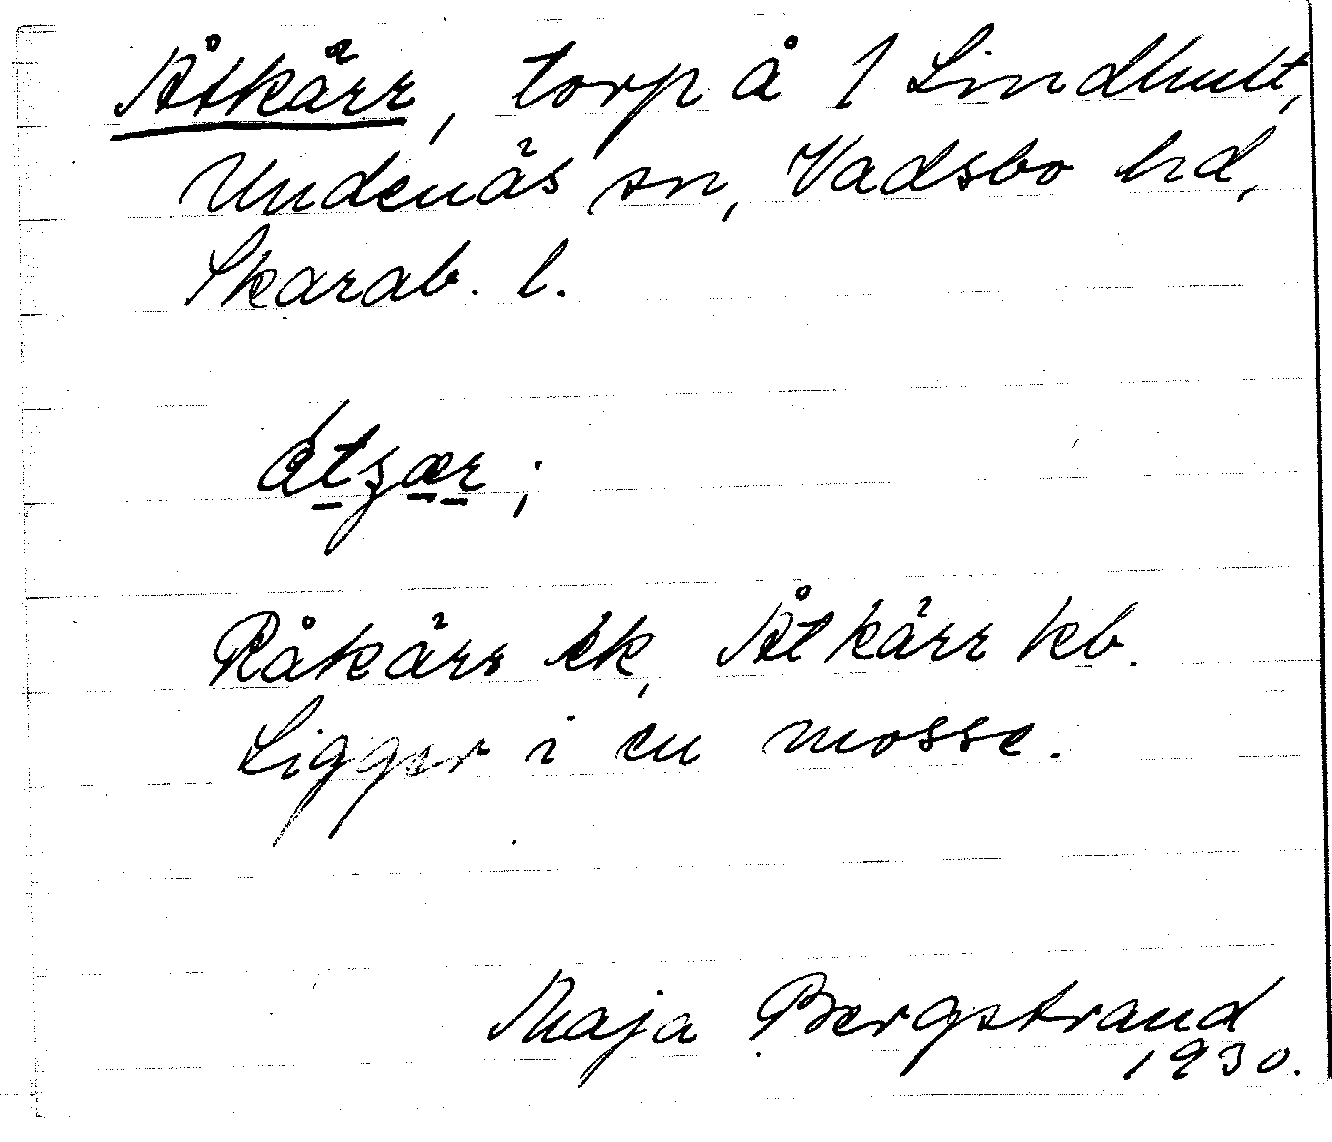 Åtkärr, torp å 1 Lindhult,
Undenäs sn, Vadsbo hd,
Skarab. l.
Råkärr ek, Åtkärr kb.
Ligger i en mosse.
Maja Bergstrand
1930.